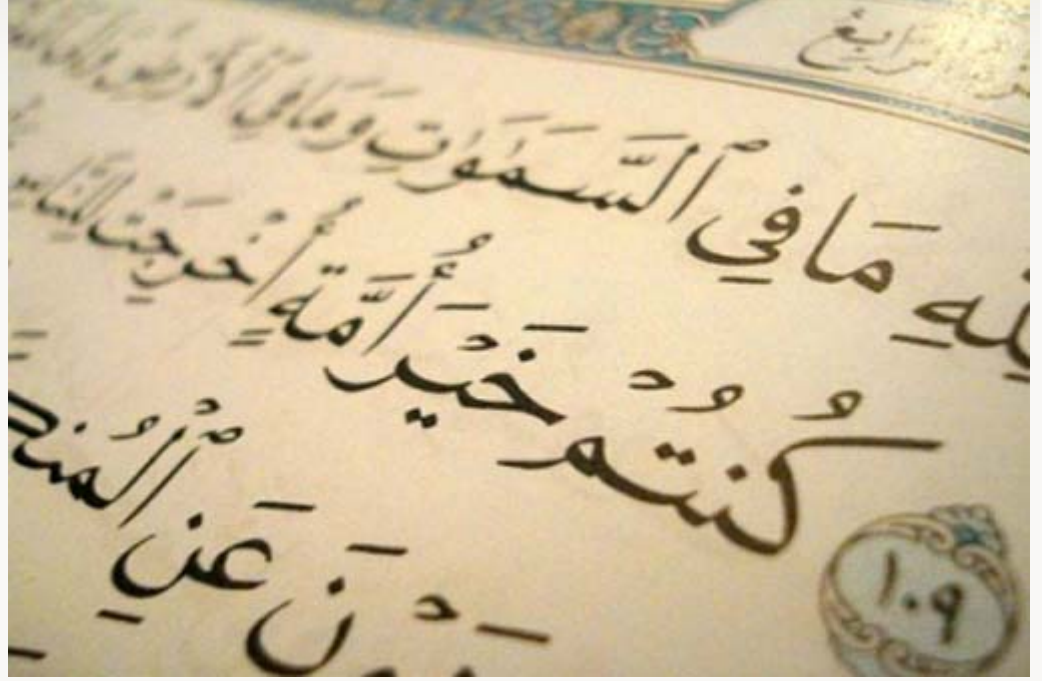 الرابع
لله مَا فِي ٱلسَّمَٰوَٰتِ وَمَا فِي ٱلْأَرْضِ
١٠٩ كُنتُمْ خَيْرَ أُمَّةٍ أُخْرِجَتْ لِلنَّاسِ
عَنِ ٱلْمُنكَ